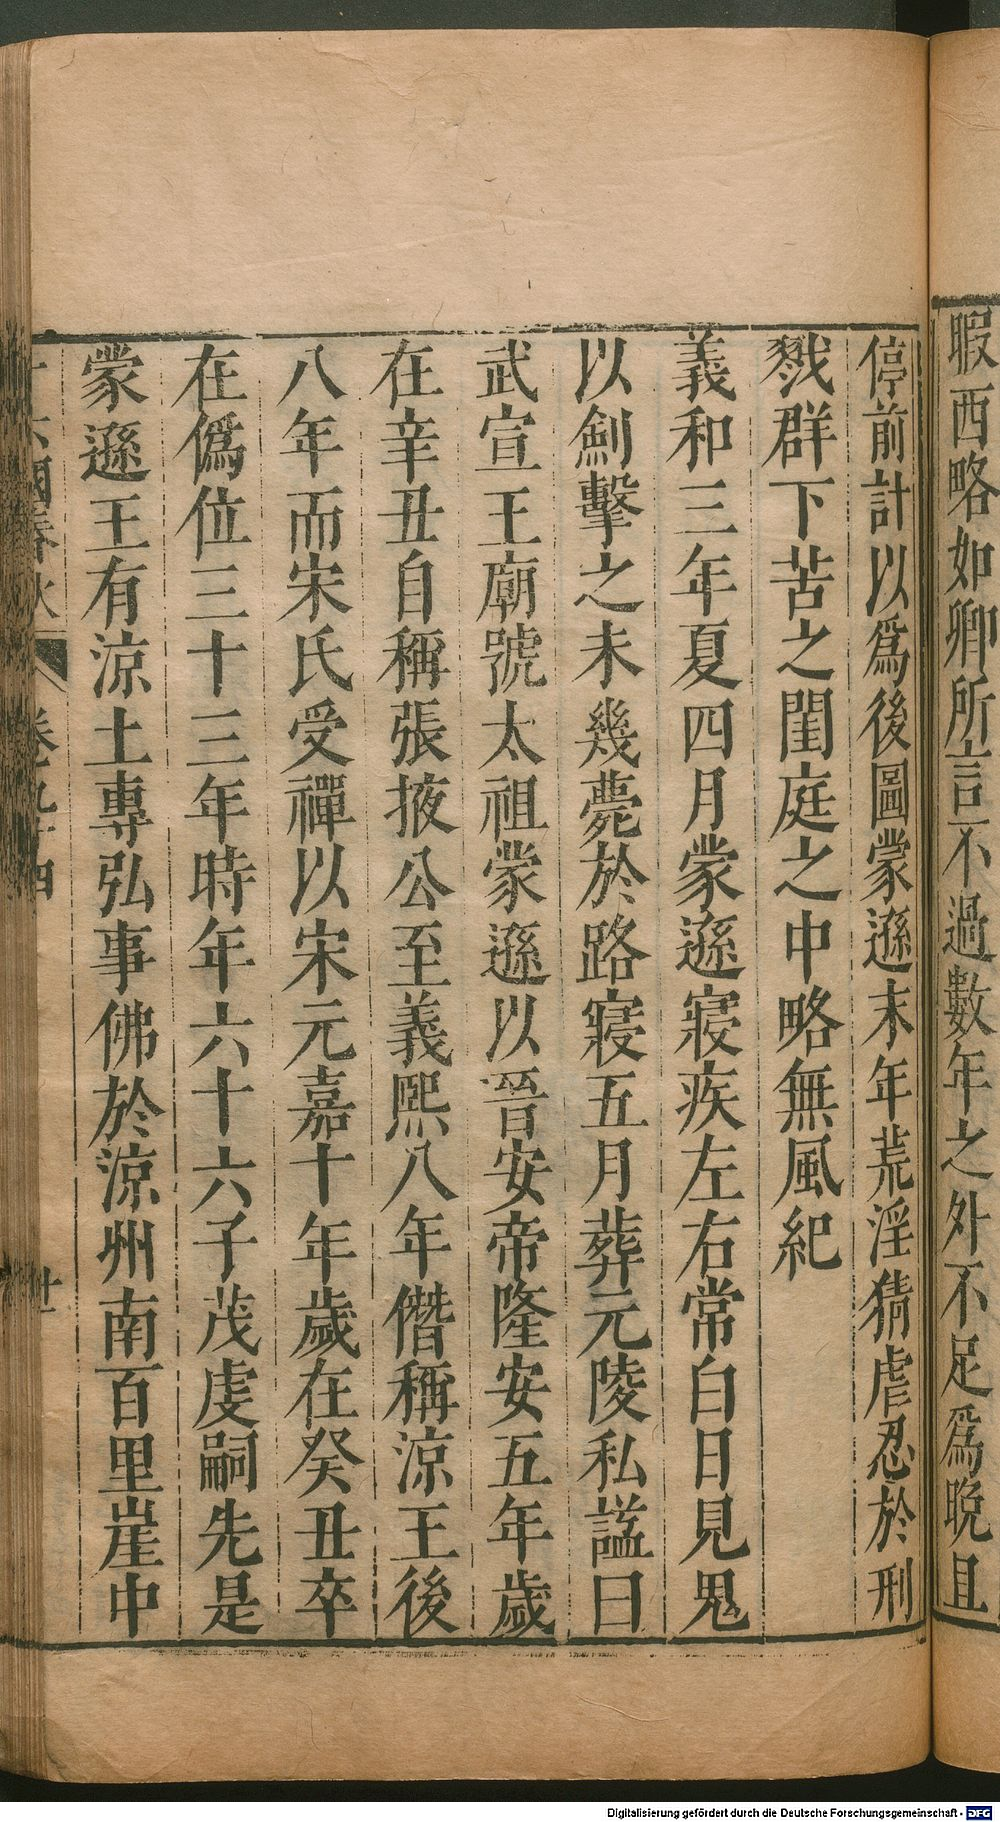 暇西略如卿所言不過數年之外不足爲晚且
停前計以爲後圖蒙遜末年荒淫猜虐忍於刑
戮群下苦之閨庭之中略無風紀
義和三年夏四月蒙遜寢疾左右常白日見鬼
以劍擊之未幾薨於路寢五月葬元陵私謚曰
武宣王廟號太祖蒙遜以晉安帝隆安五年歲
在辛丑自稱張掖公至義熙八年僭稱涼王後
八年而宋氏受禪以宋元嘉十年歲在癸丑卒
在僞位三十三年時年六十六子茂虔嗣先是
蒙遜王有涼土專弘事佛於涼州南百里崖中
十六國春秋 卷九十四 廿一
Digitalisierung gefördert durch die Deutsche Forschungsgemeinschaft - DFG